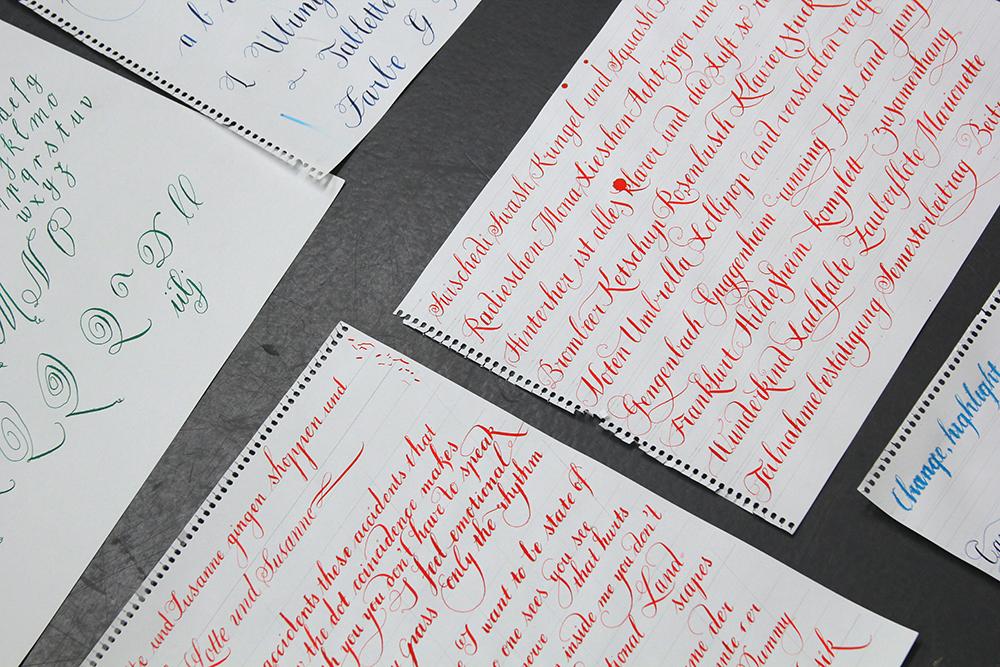 a b
Übung
Tablette
Farbe G
j k l m o
p n q r s t u v
w x y z
M N P
Q D ll
Swischedi Swash Kringel und Squash
Radieschen Mona Lieschen Achtziger und
Hinterher ist alles klarer und die Luft so
Brombeer Ketschup Rosenbusch Klavierstück
Noton Umbrella Lollipop Land verschollen
Gengenbach Guggenheim running Just and jump
Frankfurt Hildesheim komplett zusammenhang
Wunderkind Lachfalte Zauberflöte Marionette
Teilnahmebestätigung Semesterbeitrag
und Susanne gingen shoppen und
Lotte und Susanne
accidents these accidents that
the dot coincidence makes
you you don't have to speak
I feel emotional
pass only the rhythm
I want to be state of
no one sees you see
inside me that hurts
you don't
Land
scapes
der
Dummy
Change, highlight